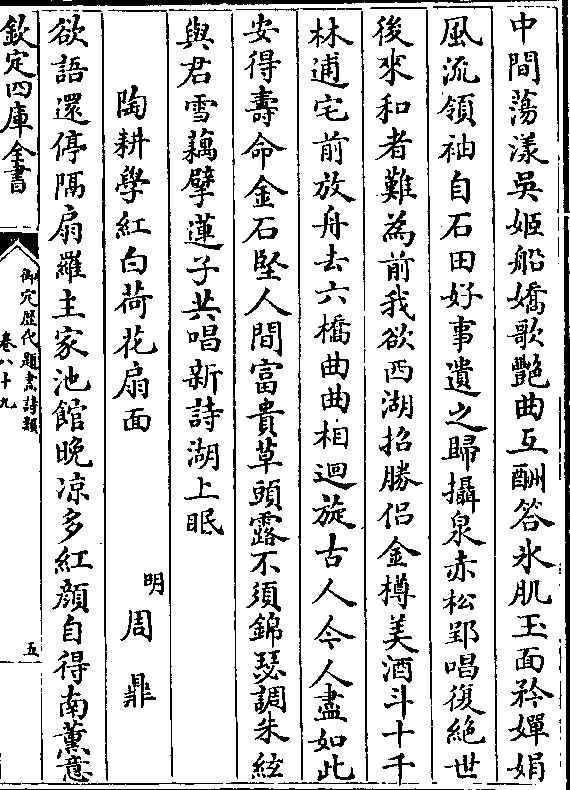 中間蕩漾吳姬船嬌歌艷曲互酬答氷肌玉面矜嬋娟
風流領袖自石田好事遺之歸攝泉赤松郢唱復絶世
後來和者難為前我欲西湖招勝侶金樽美酒斗十千
林逋宅前放舟去六橋曲曲相迴旋古人今人盡如此
安得壽命金石堅人間富貴草頭露不須錦瑟調朱絃
與君雪藕擘蓮子共唱新詩湖上眠
陶耕學紅白荷花扇面
明周鼎
欲語還停隔扇羅主家池館晚凉多紅顔自得南薰意
欽定四庫全書
御定歴代題畫詩類
卷八十九
五